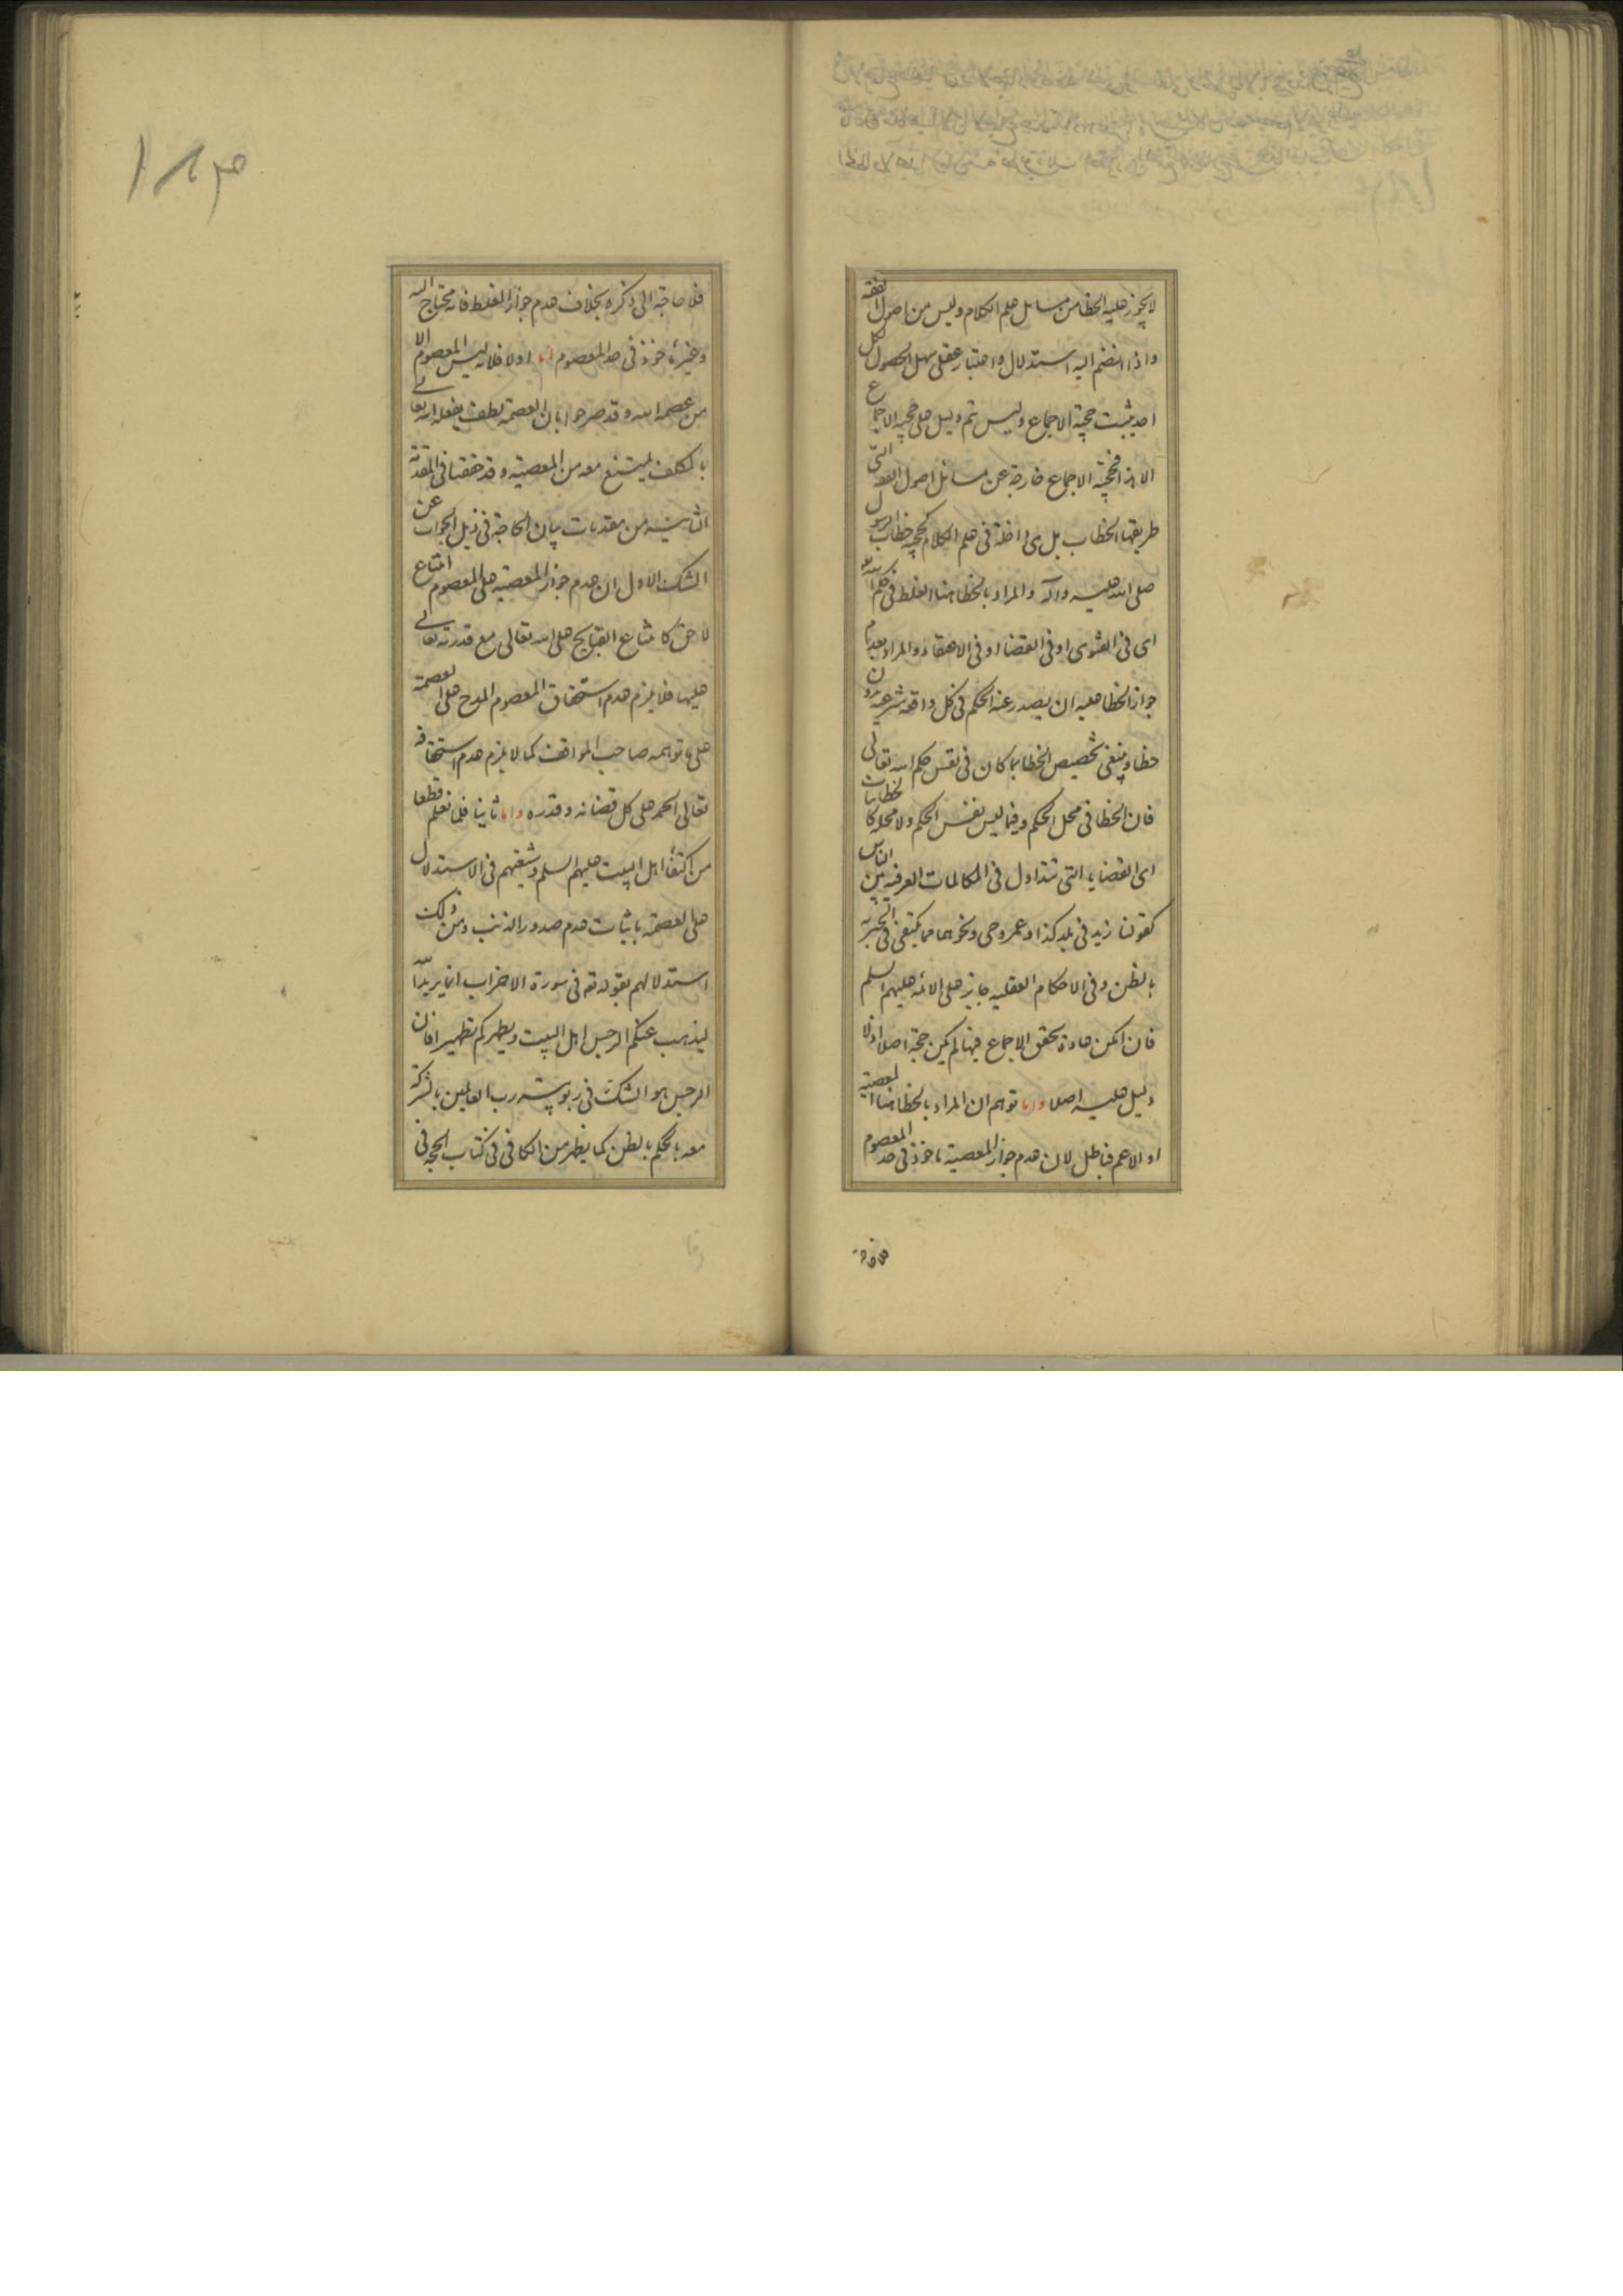 لا يجوز عليه الخطا من مسائل علم الكلام وليس من اصول الفقه
واذا انضم اليه استدلال واعتبار عقلى سهل الحصول لكل
احد يثبت حجية الاجماع وليس ثم دليل على حجية الاجماع
الا هذا فحجية الاجماع خارجة عن مسائل اصول الفقه التى
طريقها الخطاب بل هى داخلة فى علم الكلام كحجية خطاب الرسول
صلى الله عليه وآله والمراد بالخطا هنا الغلط فى حكم الله
اى فى الفتوى او فى القضا او فى الاعتقاد والمراد بعدم
جواز الخطا عليه ان يصدر عنه الحكم فى كل واقعة شرعية بدون
خطا وينبغى تخصيص الخطا بما كان فى نفس حكم الله تعالى
فان الخطا فى محل الحكم وفيما ليس نفس الحكم ولا محله كالخطابيات
اى القضايا التى تتداول فى المكالمات العرفية بين الناس
كقولنا زيد فى بلد كذا وعمرو حى ونحوهما مما يكتفى فى الخبر به
بالظن وفى الاحكام العقليه جايز على الائمه عليهم السلم
فان امكن عادة تحقق الاجماع فيها لم يكن حجة اصلا اذ لا
دليل عليه اصلا واما توهم ان المراد بالخطا هنا المعصية
او الاعم فباطل لان عدم جواز المعصية ماخوذ فى حد المعصوم
فلا حاجة
١٨٣
فلا حاجة الى ذكره بخلاف عدم جواز الغلط فانه محتاج اليه
وغير ماخوذ فى حد المعصوم اما اولا فلانه ليس المعصوم الا
من عصمه الله وقد صرحوا بان العصمة لطف يفعله الله تعالى
بالمكلف ليمتنع معه من المعصية وقد حققنا فى المقدمة
الثانيه من مقدمات بيان الحاجة فى ذيل الجواب عن
الشك الاول ان عدم جواز المعصية على المعصوم امتناع
لاحق كامتناع القبايح على الله تعالى مع قدرته تعالى
عليها فلا يلزم عدم استحقاق المعصوم المدح على العصمة
على ما توهمه صاحب المواقف كما لا يلزم عدم استحقاقه
تعالى الحمد على كل قضائه وقدره واما ثانيا فلما نعلم قطعا
من اكتفاء اهل البيت عليهم السلم وشيعتهم فى الاستدلال
على العصمة باثبات عدم صدور الذنب ومن ذلك
استدلالهم بقوله تع فى سورة الاحزاب انما يريد الله
ليذهب عنكم الرجس اهل البيت ويطهركم تطهيرا فان
الرجس هو الشك فى ربوبيته رب العالمين بالشركة
معه بالحكم بالظن كما يظهر من الكافى فى كتاب الحجه فى